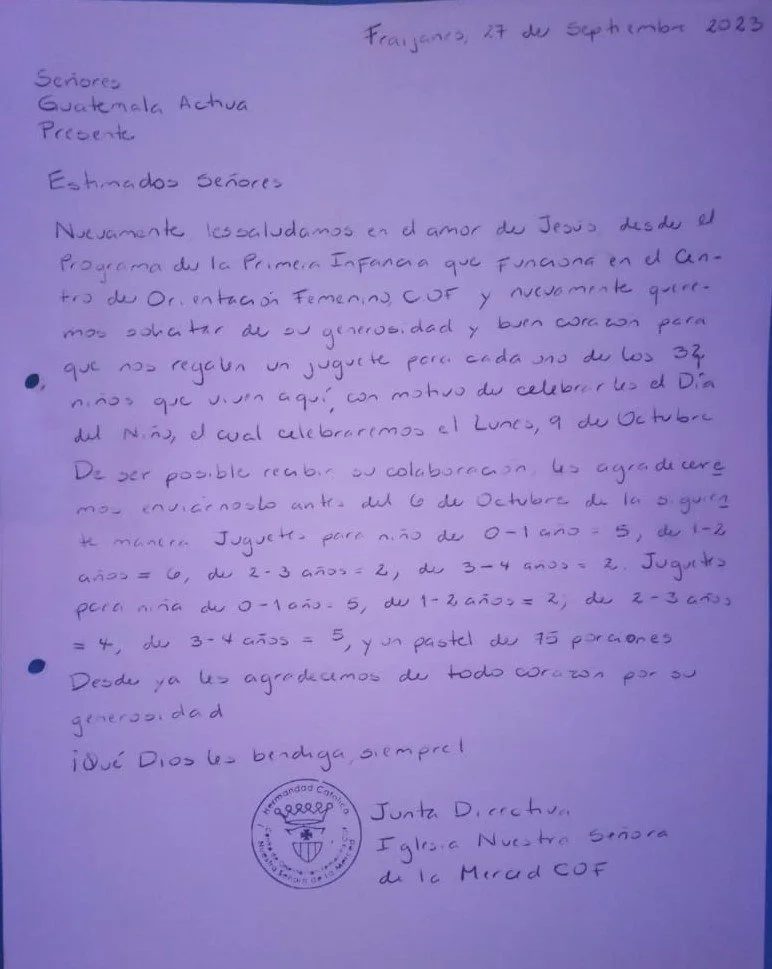 Fraijanes, 27 de Septiembre 2023
Señores
Guatemala Activa
Presente
Estimados Señores
Nuevamente lessaludamos en el amor de Jesús desde el
Programa de la Primera Infancia que funciona en el Cen-
tro de Orientación Femenino, COF y nuevamente quere-
mos solicitar de su generosidad y buen corazon para
que nos regalen un juguete para cada uno de los 32
niños que viven aquí, con motivo de celebrarles el Día
del Niño, el cual celebraremos el Lunes, 9 de Octubre
De ser posible recibir su colaboración, les agradecere
mos enviárnoslo antes del 6 de Octubre de la siguien
te manera Juguetes para niño de 0-1 año = 5, de 1-2
años = 6, de 2-3 años = 2, de 3-4 años = 2. Juguetes
para niña de 0-1 año = 5, de 1-2 años = 2; de 2-3 años
= 4, de 3-4 años = 5, y un pastel de 75 porciones
Desde ya les agradecemos de todo corazon por su
generosidad
¡Qué Dios les bendiga, siempre!
Hermandad Católica
Nuestra Señora de la Merced
Junta Directiva
Iglesia Nuestra Señora
de la Merced COF